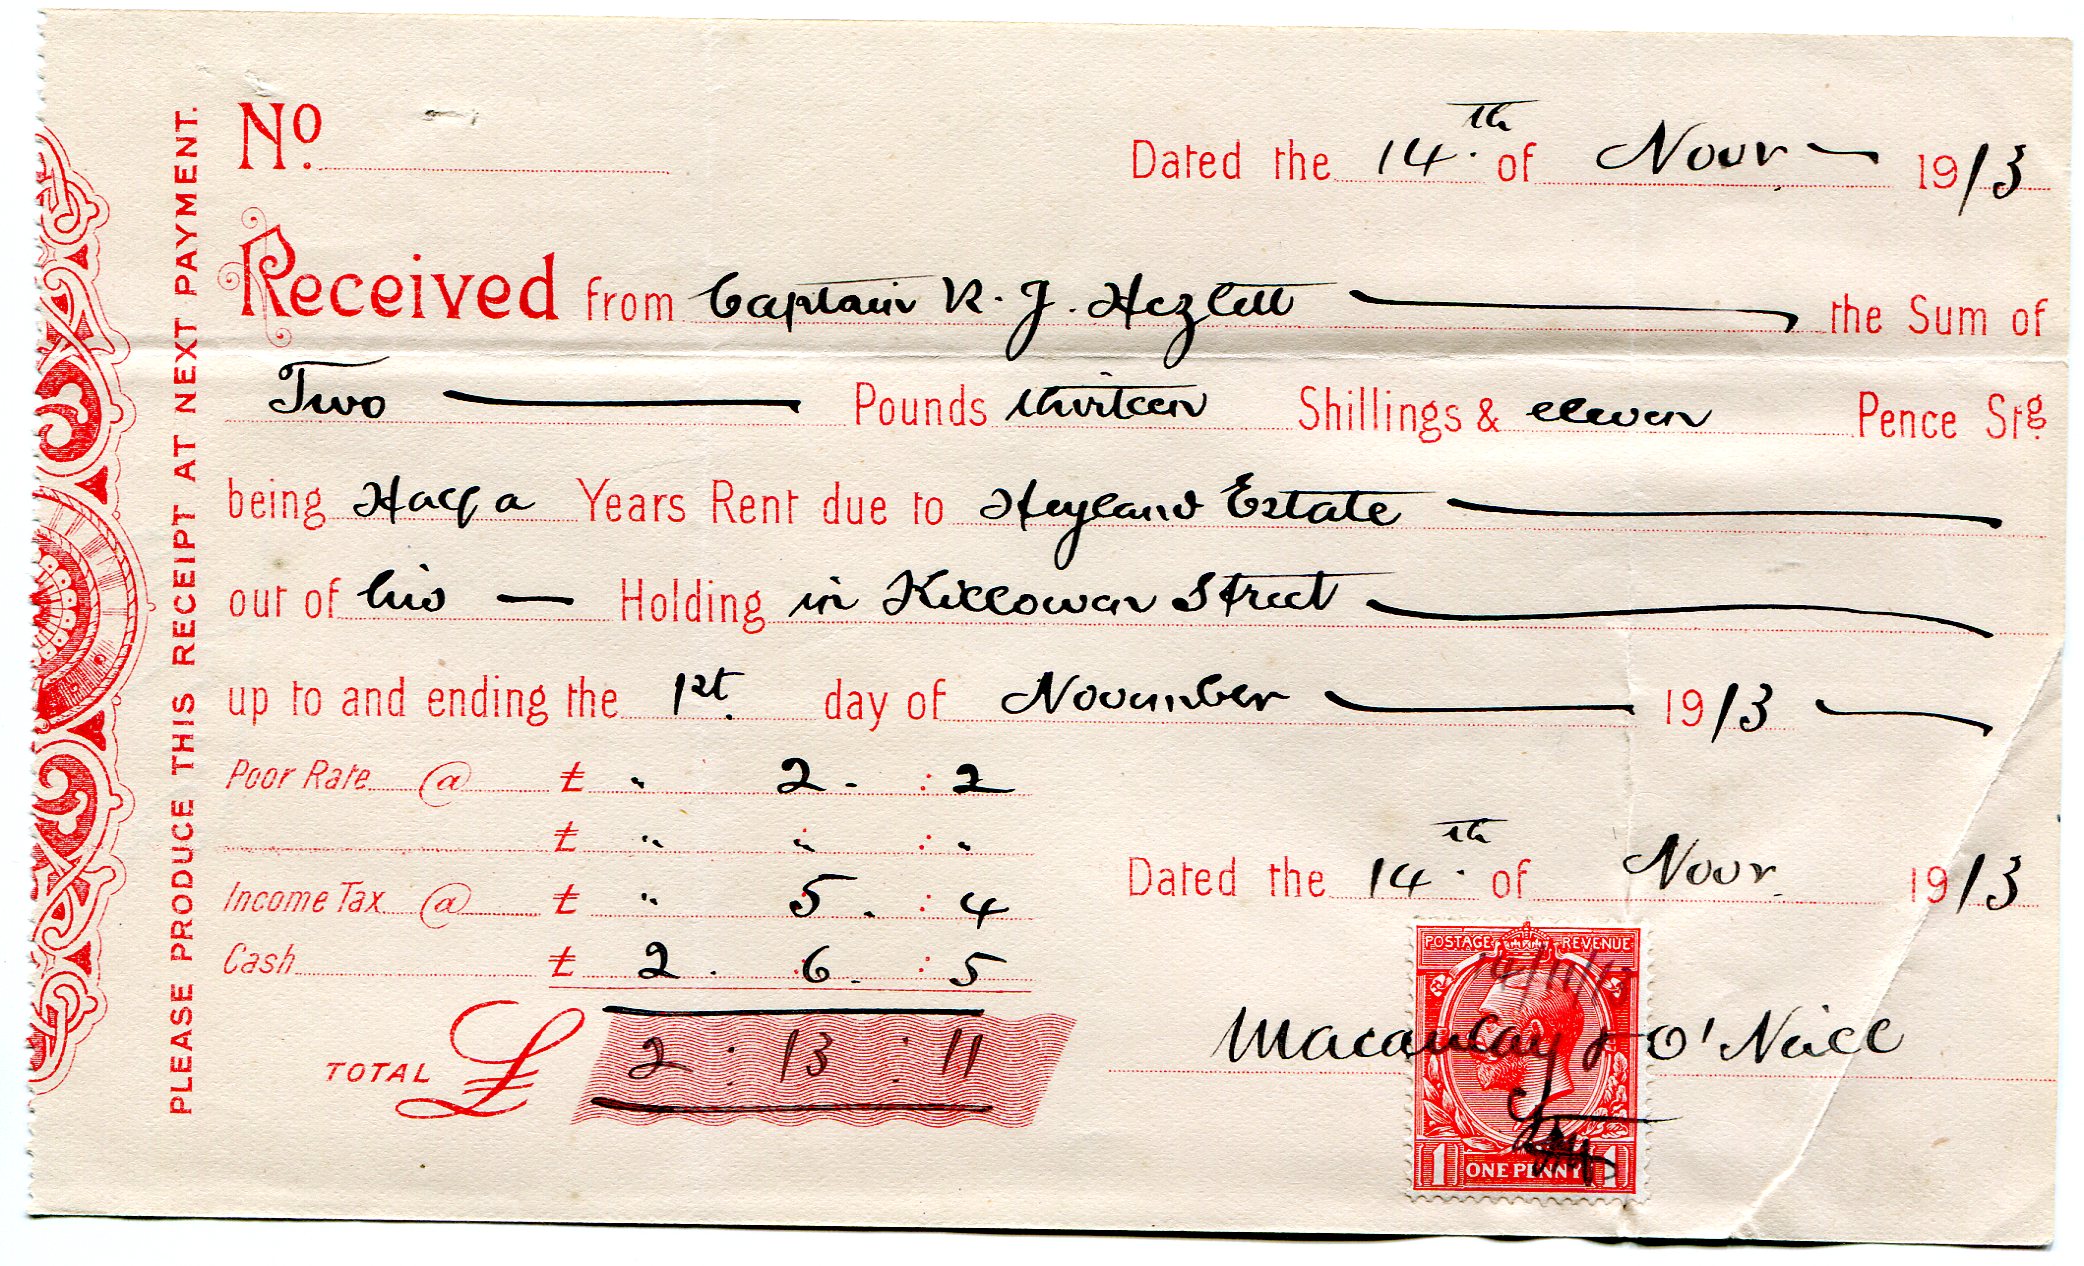 PLEASE PRODUCE THIS RECEIPT AT NEXT PAYMENT.
No.
Dated the 14th. of Novr 1913
Received from Captain R. J. Hezlett the Sum of
Two Pounds thirteen Shillings & eleven Pence Stg.
being Half a Years Rent due to Heyland Estate
out of his Holding in Killowen Street
up to and ending the 1st. day of November 1913
Poor Rate @ £ " 2 . : 2
£ " " : "
Income Tax @ £ " 5 . : 4
Cash £ 2 . 6 . : 5
TOTAL £ 2 : 13 : 11
Dated the 14th. of Novr. 1913
POSTAGE REVENUE
14/11/13
Macaulay & O'Neill
1 ONE PENNY 1